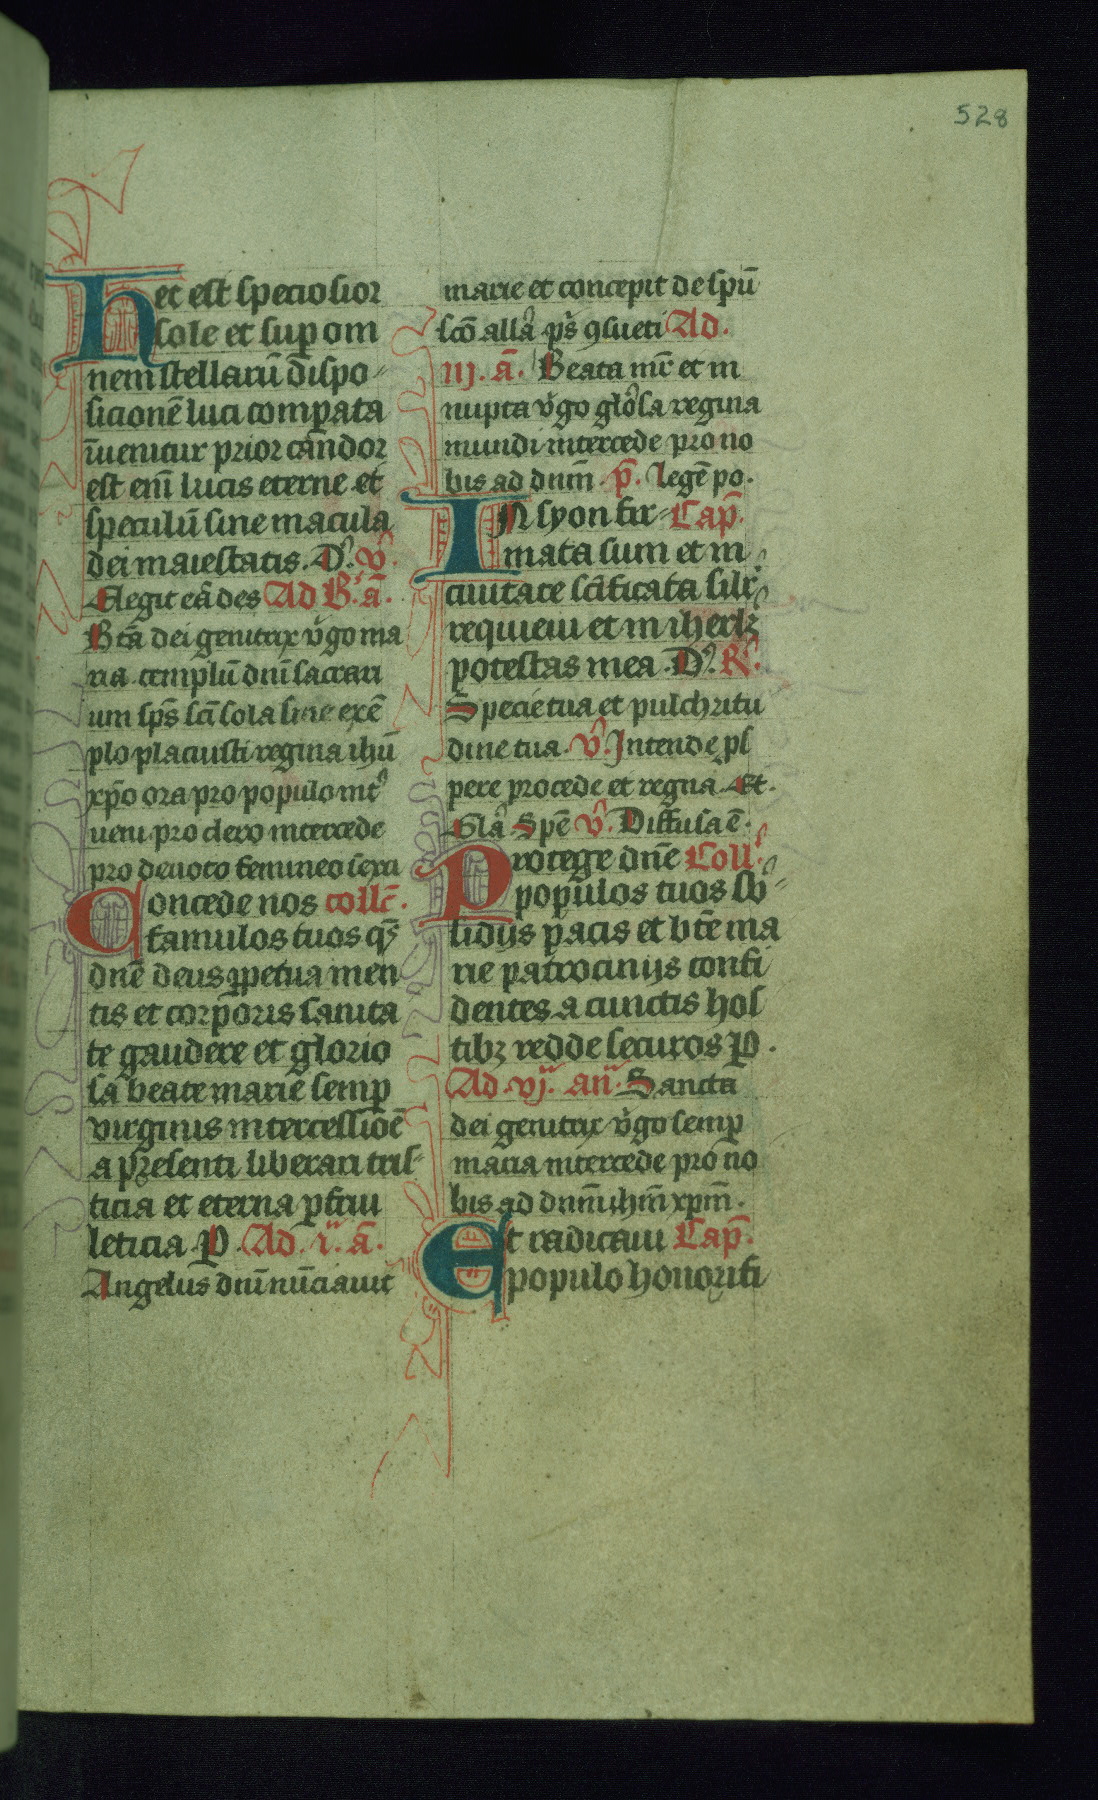 528
Hec est speciosior
sole et sup om
nem stellarū dispo
sicionē luci compata
īuenitur prior candor
est enī lucis eterne et
speculū sine macula
dei maiestatis. D'. v̂
Elegit eā des Ad B's. ā.
Btā dei genitrix v̂go ma
ria templū dnī sacrari
um sps scī sola sine exē
plo placuisti regina ihū
xpo ora pro populo int'
ueni pro clero intercede
pro deuoto femineo sexu
Concede nos collc̄.
famulos tuos qs
dnē deus ppetua men
tis et corporis sanita
te gaudere et glorio
sa beate marie semp
virginis intercessioē
a presenti liberari tris
ticia et eterna pfrui
leticia P. Ad. i. ā.
Angelus dnī nūciauit
marie et concepit de spū
scō allā ps 9sueti Ad.
iij. ā. Beata mr̄ et in
nupta v̂go glo'sa regina
mundi intercede pro no
bis ad dnm̄. p̄. legē po.
IN syon fir Cap̄.
mata sum et in
ciuitate scīficata silr
requieui et in iherlz
potestas mea D'. R'.
Specie tua et pulchritu
dine tua. v̂. Intende ps
pere procede et regna. Et.
Glā Spē v̂. Diffusa ē.
Protege dnē Coll'.
populos tuos sb
sidijs pacis et btē ma
rie patrocinijs confi
dentes a cunctis hos
tibz redde securos P.
Ad. vj. an. Sancta
dei genitrix v̂go semp
maria intercede pro no
bis ad dnm̄ ihm̄ xpm̄.
Et radicaui Cap̄.
populo honorifi